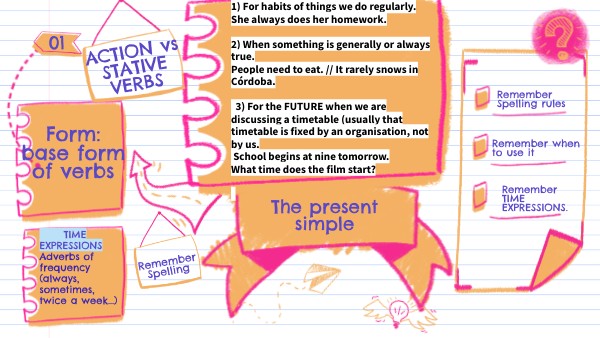 01
ACTION VS
STATIVE
VERBS
1) For habits of things we do regularly.
She always does her homework.
2) When something is generally or always
true.
People need to eat. // It rarely snows in
Córdoba.
3) For the FUTURE when we are
discussing a timetable (usually that
timetable is fixed by an organisation, not
by us.
School begins at nine tomorrow.
What time does the film start?
?
Remember
Spelling rules
Remember when
to use it
Remember
TIME
EXPRESSIONS.
Form:
base form
of verbs
The present
simple
TIME
EXPRESSIONS
Adverbs of
frequency
(always,
sometimes,
twice a week...)
Remember
Spelling